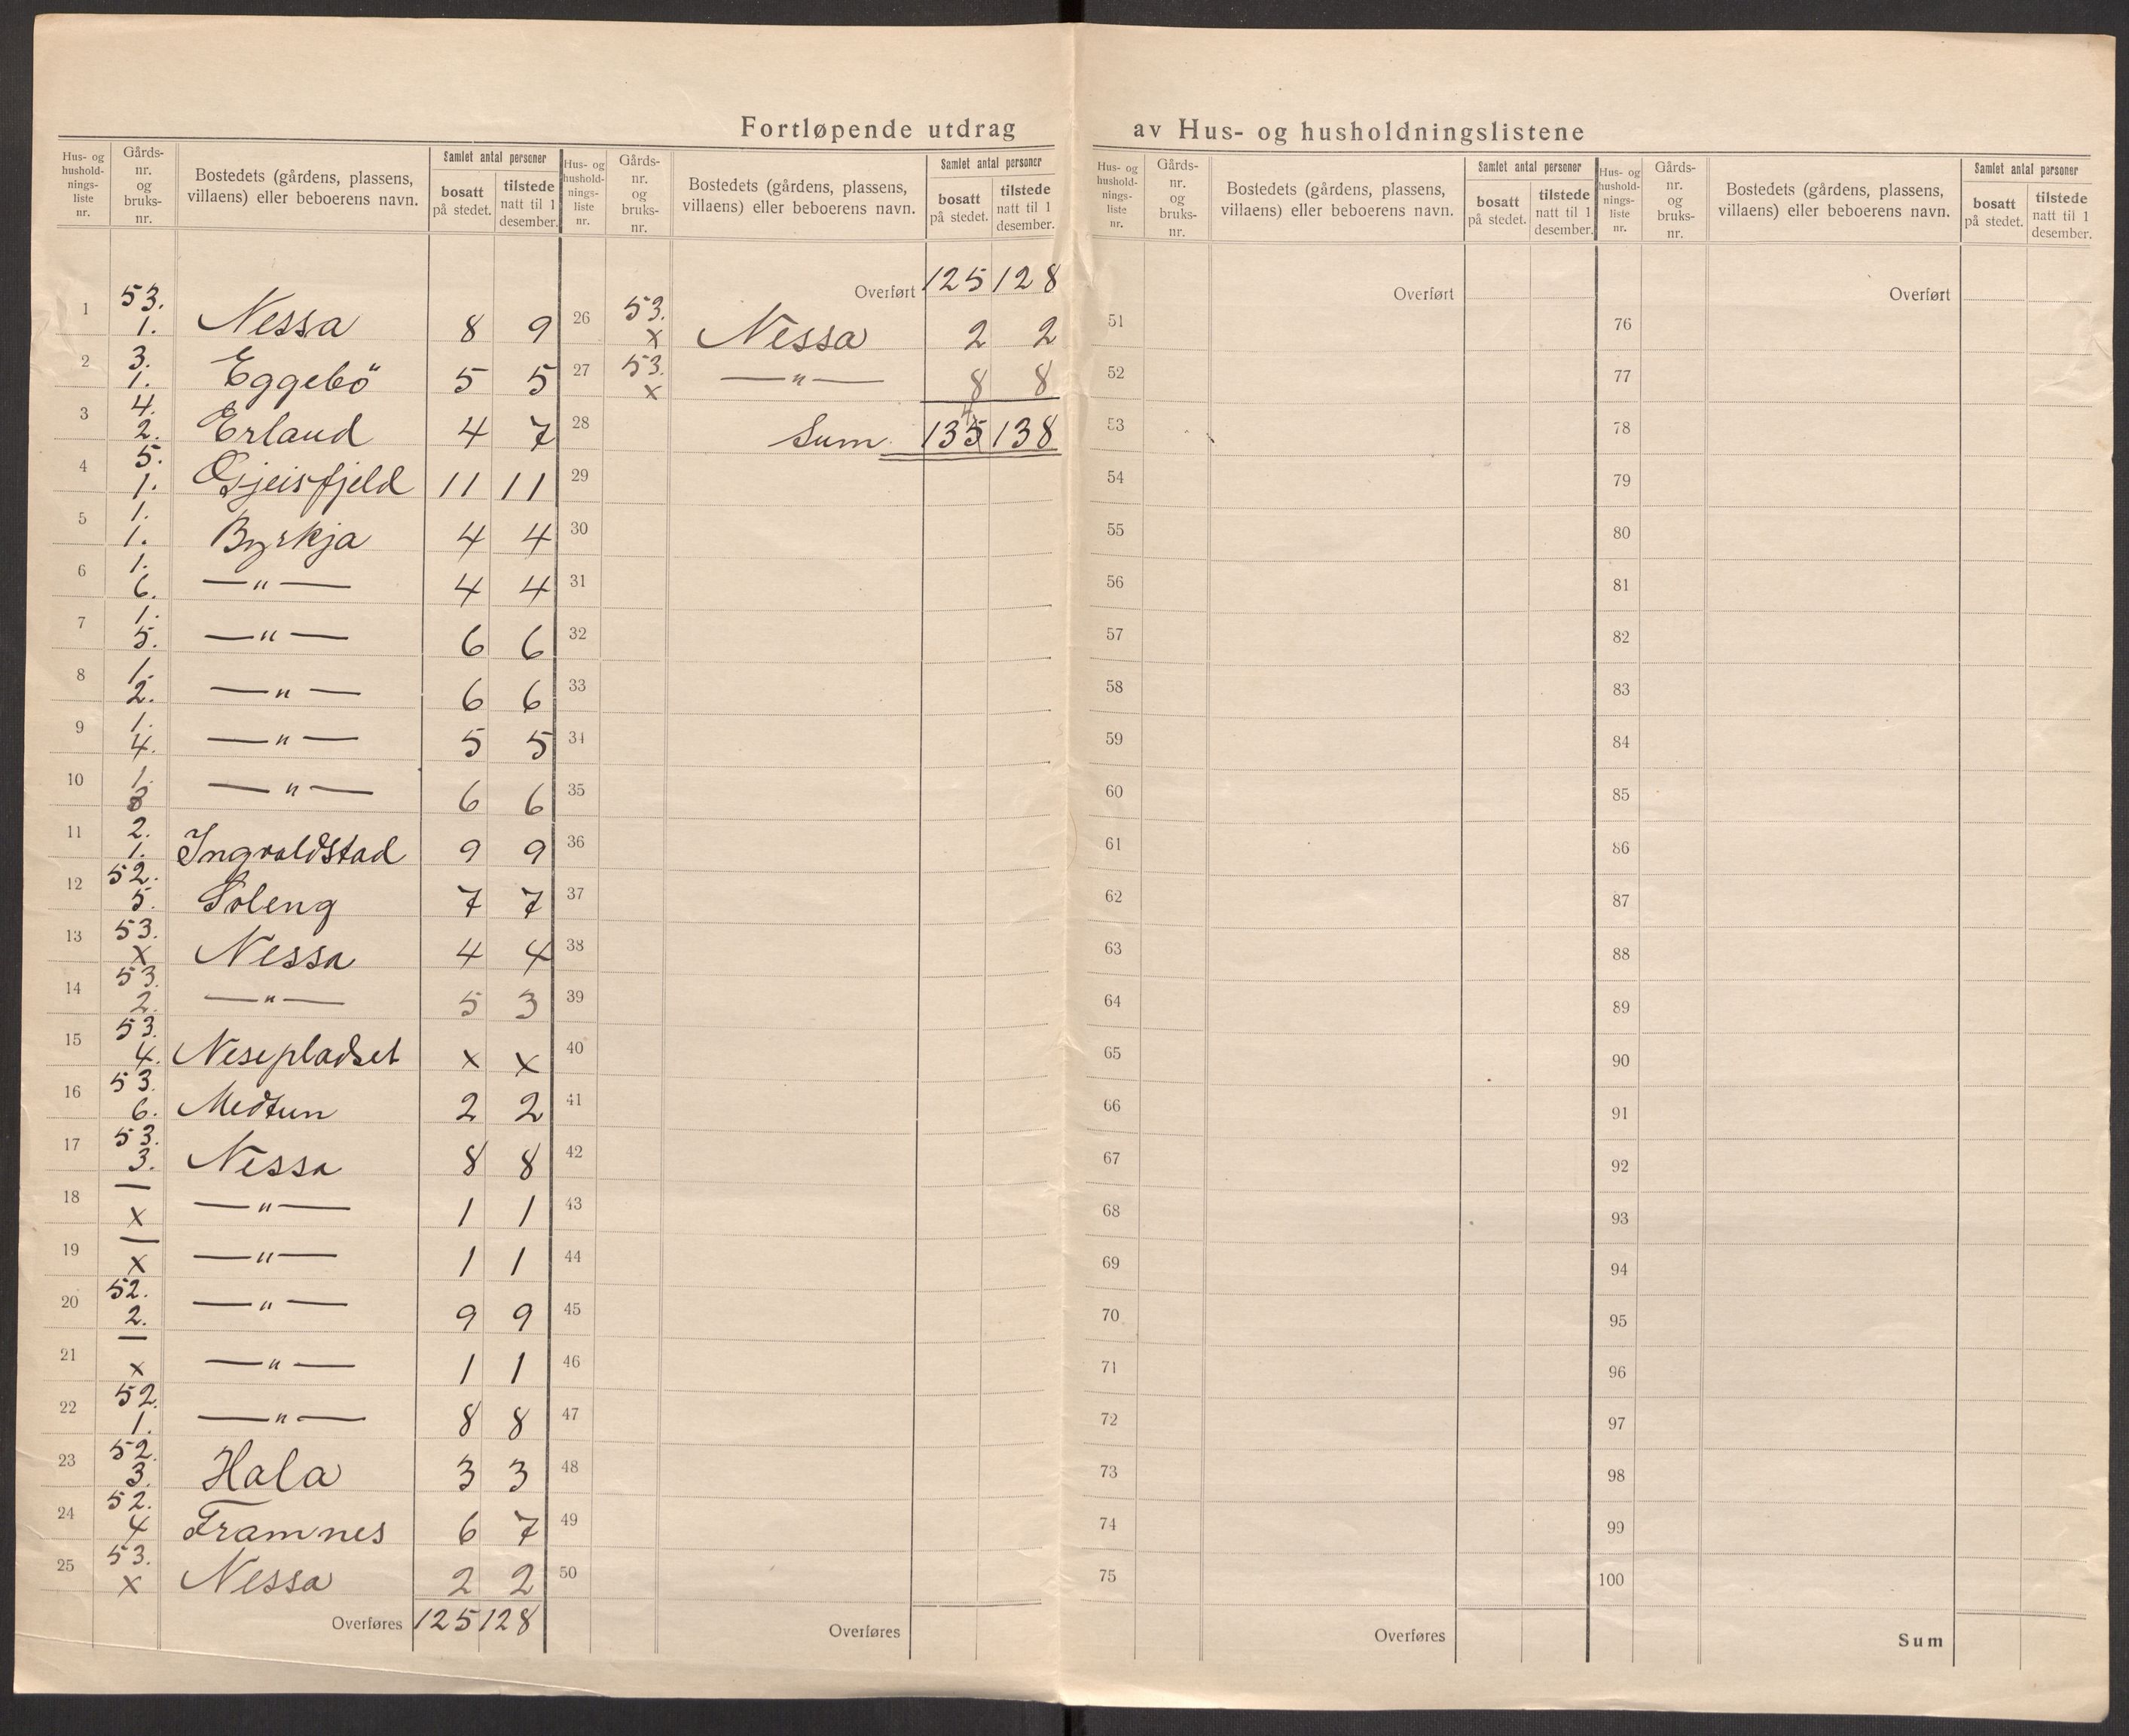 Fortløpende utdrag av Hus- og husholdningslistene
Hus- og husholdnings-liste nr. Gårds-nr. og bruks-nr. Bostedets (gårdens, plassens, villaens) eller beboerens navn. Samlet antal personer bosatt på stedet. tilstede natt til 1 desember.
1 53. 1. Nessa 8 9
2 3. 1. Eggebö 5 5
3 4. 2. Erland 4 7
4 5. 1. Gjeisfjeld 11 11
5 1. 1. Byrkja 4 4
6 1. 6. —"— 4 4
7 1. 5. —"— 6 6
8 1. 2. —"— 6 6
9 1. 4. —"— 5 5
10 1. 8 —"— 6 6
11 2. 1. Ingvaldstad 9 9
12 52. 5. Soleng 7 7
13 53. x Nessa 4 4
14 53. 2. —"— 5 3
15 53. 4. Nesepladset x x
16 53. 6. Medtun 2 2
17 53. 3. Nessa 8 8
18 — x —"— 1 1
19 — x —"— 1 1
20 52. 2. —"— 9 9
21 — x —"— 1 1
22 52. 1. —"— 8 8
23 52. 3. Hala 3 3
24 52. 4 Framnes 6 7
25 53. x Nessa 2 2
Overføres 125 128
Hus- og husholdnings-liste nr. Gårds-nr. og bruks-nr. Bostedets (gårdens, plassens, villaens) eller beboerens navn. Samlet antal personer bosatt på stedet. tilstede natt til 1 desember.
Overført 125 128
26 53. x Nessa 2 2
27 53. x —"— 8 8
28 Sum 135 138
4
29
30
31
32
33
34
35
36
37
38
39
40
41
42
43
44
45
46
47
48
49
50
Overføres
Hus- og husholdnings-liste nr. Gårds-nr. og bruks-nr. Bostedets (gårdens, plassens, villaens) eller beboerens navn. Samlet antal personer bosatt på stedet. tilstede natt til 1 desember.
Overført
51
52
53
54
55
56
57
58
59
60
61
62
63
64
65
66
67
68
69
70
71
72
73
74
75
Overføres
Hus- og husholdnings-liste nr. Gårds-nr. og bruks-nr. Bostedets (gårdens, plassens, villaens) eller beboerens navn. Samlet antal personer bosatt på stedet. tilstede natt til 1 desember.
Overført
76
77
78
79
80
81
82
83
84
85
86
87
88
89
90
91
92
93
94
95
96
97
98
99
100
Sum